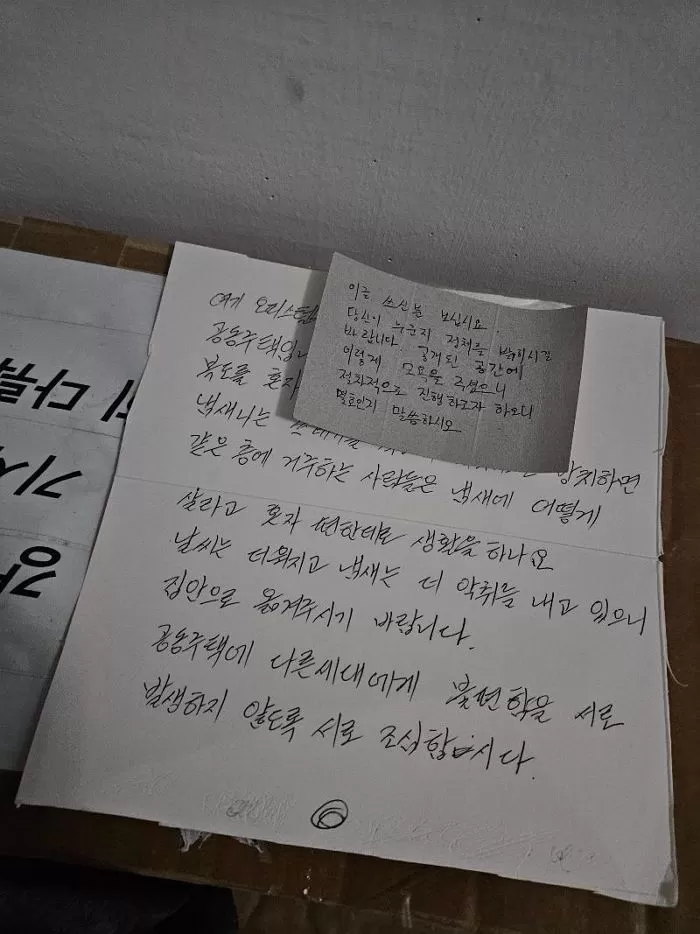 여게 오피스텔
공동주택입
복도를 혼자
냄새나는 방치하면
같은 층에 거주하는 사람들은 냄새에 어떻게
살라고 혼자 편한데로 생활을 하나요
날씨는 더워지고 냄새는 더 악취를 내고 있으니
집안으로 옮겨주시기 바랍니다.
공동주택에 다른세대에게 불편함을 서로
발생하지 않도록 서로 조심합시다.
이글 쓰신분 보십시요.
당신이 누군지 정체를 밝히시길
바랍니다. 공개된 공간에
이렇게 모욕을 주셨으니
절차적으로 진행하고자 하오니
몇호인지 말씀하시오